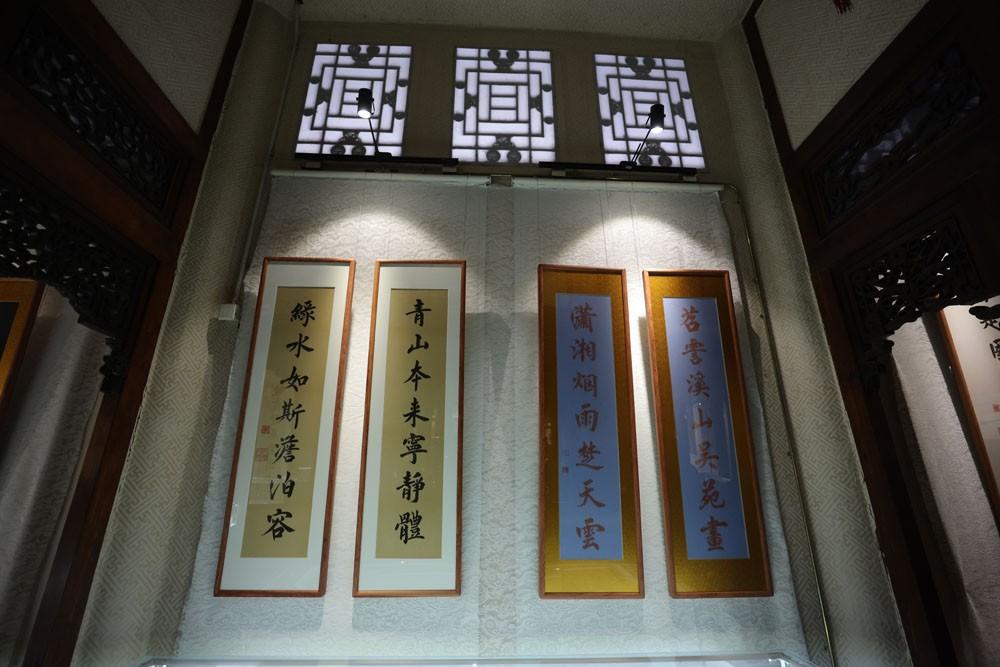 苕霅溪山吴苑畫
瀟湘烟雨楚天雲
青山本来寧靜體
綠水如斯澹泊容